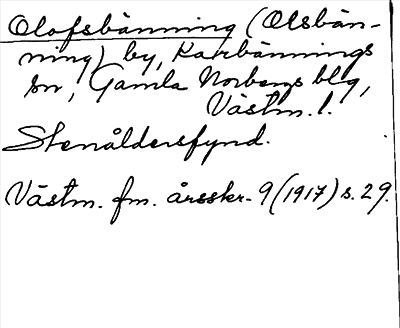 Olofsbänning (Olsbän-
ning) by, Karbennings
sn, Gamla Norbergs blg,
Västm. l.
Stenåldersfynd.
Västm. fm. årsskr. 9 (1917) s. 29.